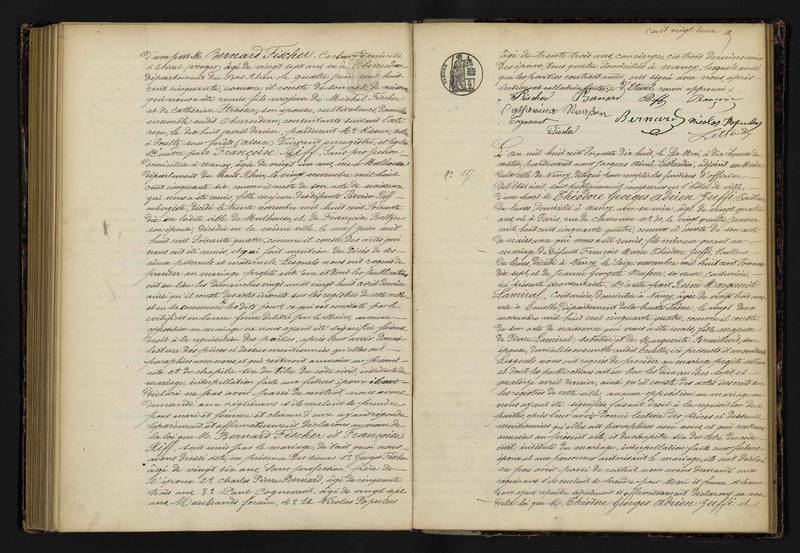 D'une part M. Bernard Fischer, domicilié
à âgé de vingt sept ans né à Oberrœdern
Département du Bas Rhin le quatre juin mil huit
cent cinquante, comme il conste de son acte de naissance
qui nous a été remis, fils majeur de Michel Fischer,
et de Catherine son épouse, cultivateurs, domiciliés
ensemble audit Oberrœdern, consentants suivant l'acte
reçu, le dix huit avril dernier, par M.e notaire
à Soultz-sous-forêts (Alsace), dûment enregistré, et légalisé
D'autre part Françoise Riff, sans profession,
domiciliée à Nancy, âgée de vingt un ans, née à Mulhouse
département du Haut Rhin, le vingt novembre mil huit
cent cinquante six, comme il conste de son acte de naissance
qui nous a été remis, fille majeure des défunts Riff
aubergiste, décédé le novembre mil huit cent soixante
dix en ladite ville de Mulhouse, et de Françoise
son épouse, décédée en la même ville, le neuf juin mil
huit cent soixante quatre, comme il conste des actes qui
nous ont été remis et qui font mention du décès de ses
aïeux paternels et maternels. Lesquels nous ont requis de
procéder au mariage projeté entre eux et dont les publications
ont eu lieu les dimanches vingt un et vingt huit avril dernier
ainsi qu'il conste des actes inscrits sur les registres de cette ville
certificat en bonne forme délivré par le Maire, aucune
opposition au mariage ne nous ayant été signifiée, faisant
droit à la réquisition des parties, après leur avoir donné
lecture des pièces ci dessus mentionnées qu'elles ont
paraphées avec nous, et qui resteront annexées au présent
acte et du chapitre six du titre du code civil, intitulé du
mariage, interpellation faite aux futurs époux ils ont
déclaré ne pas avoir passé de contrat, nous avons
demandé aux requérans s'ils veulent se prendre
pour mari et femme et chacun d'eux ayant répondu
séparément et affirmativement déclarons au nom de
la loi que M. Bernard Fischer et Françoise
Riff, sont unis par le mariage. De tout quoi nous
avons dressé acte en présence des sieurs 1.° Georges Fischer
âgé de vingt six ans, sans profession, frère de
l'époux 2.° Charles Pierre Bernard, âgé de cinquante
trois ans, 3.° Cognevaut, âgé de vingt sept
ans, Marchands forains, 4.° et Nicolas Populus
cent vingt deux
âgé de trente trois ans, concierge, ces trois derniers amis
des époux, tous quatre domiciliés à Nancy, lesquels ainsi
que les parties contractantes, ont signé avec nous après
lecture et collation faites.
Fischer Bernard Riff
Cognevaut Bernard Nicolas Populus
N.° 117.
L'an mil huit cent soixante dix huit, le Mai, à dix heures du
matin, pardevant nous Jacques Aimé adjoint au Maire
de la ville de Nancy, délégué pour remplir les fonctions d'officier
de l'état civil, sont publiquement comparus en l'hôtel de ville,
d'une part M. Théodore Georges Adrien Zuffi,
de livres, domicilié à Nancy, âgé de vingt quatre
ans, né à Paris, rue de Charonne le vingt quatre
mil huit cent cinquante quatre, comme il conste de son acte
de naissance qui nous a été remis, fils mineur quant au
mariage de défunt François Marie Théodore Zuffi,
de livres, décédé à Nancy, le novembre mil huit cent soixante
dix sept, et de Jeanne Georgette sa veuve, couturière,
ici présente et consentante. D'autre part Reine Marguerite
Laméral, couturière, domiciliée à Nancy, âgée de vingt trois ans,
née à Département de la haute Saône, le vingt deux
novembre mil huit cent cinquante quatre, comme il conste
de son acte de naissance qui nous a été remis, fille majeure
de Pierre Laméral, sabotier, et de Marguerite son
épouse, domiciliés ensemble audit ici présents et consentants
Lesquels nous ont requis de procéder au mariage projeté entre eux
et dont les publications ont eu lieu les dimanches sept et
quatorze avril dernier, ainsi qu'il conste des actes inscrits sur
les registres de cette ville, aucune opposition au mariage ne
nous ayant été signifiée, faisant droit à la réquisition des
parties, après leur avoir donné lecture des pièces ci dessus
mentionnées qu'elles ont paraphées avec nous et qui resteront
annexées au présent acte, et du chapitre six du titre du code
civil, intitulé du mariage, interpellation faite aux futurs
époux et aux personnes autorisant le mariage, ils ont déclaré
ne pas avoir passé de contrat, nous avons demandé aux
requérans s'ils veulent se prendre pour mari et femme, et chacun
d'eux ayant répondu séparément et affirmativement déclarons au nom
de la loi que M. Théodore Georges Adrien Zuffi et